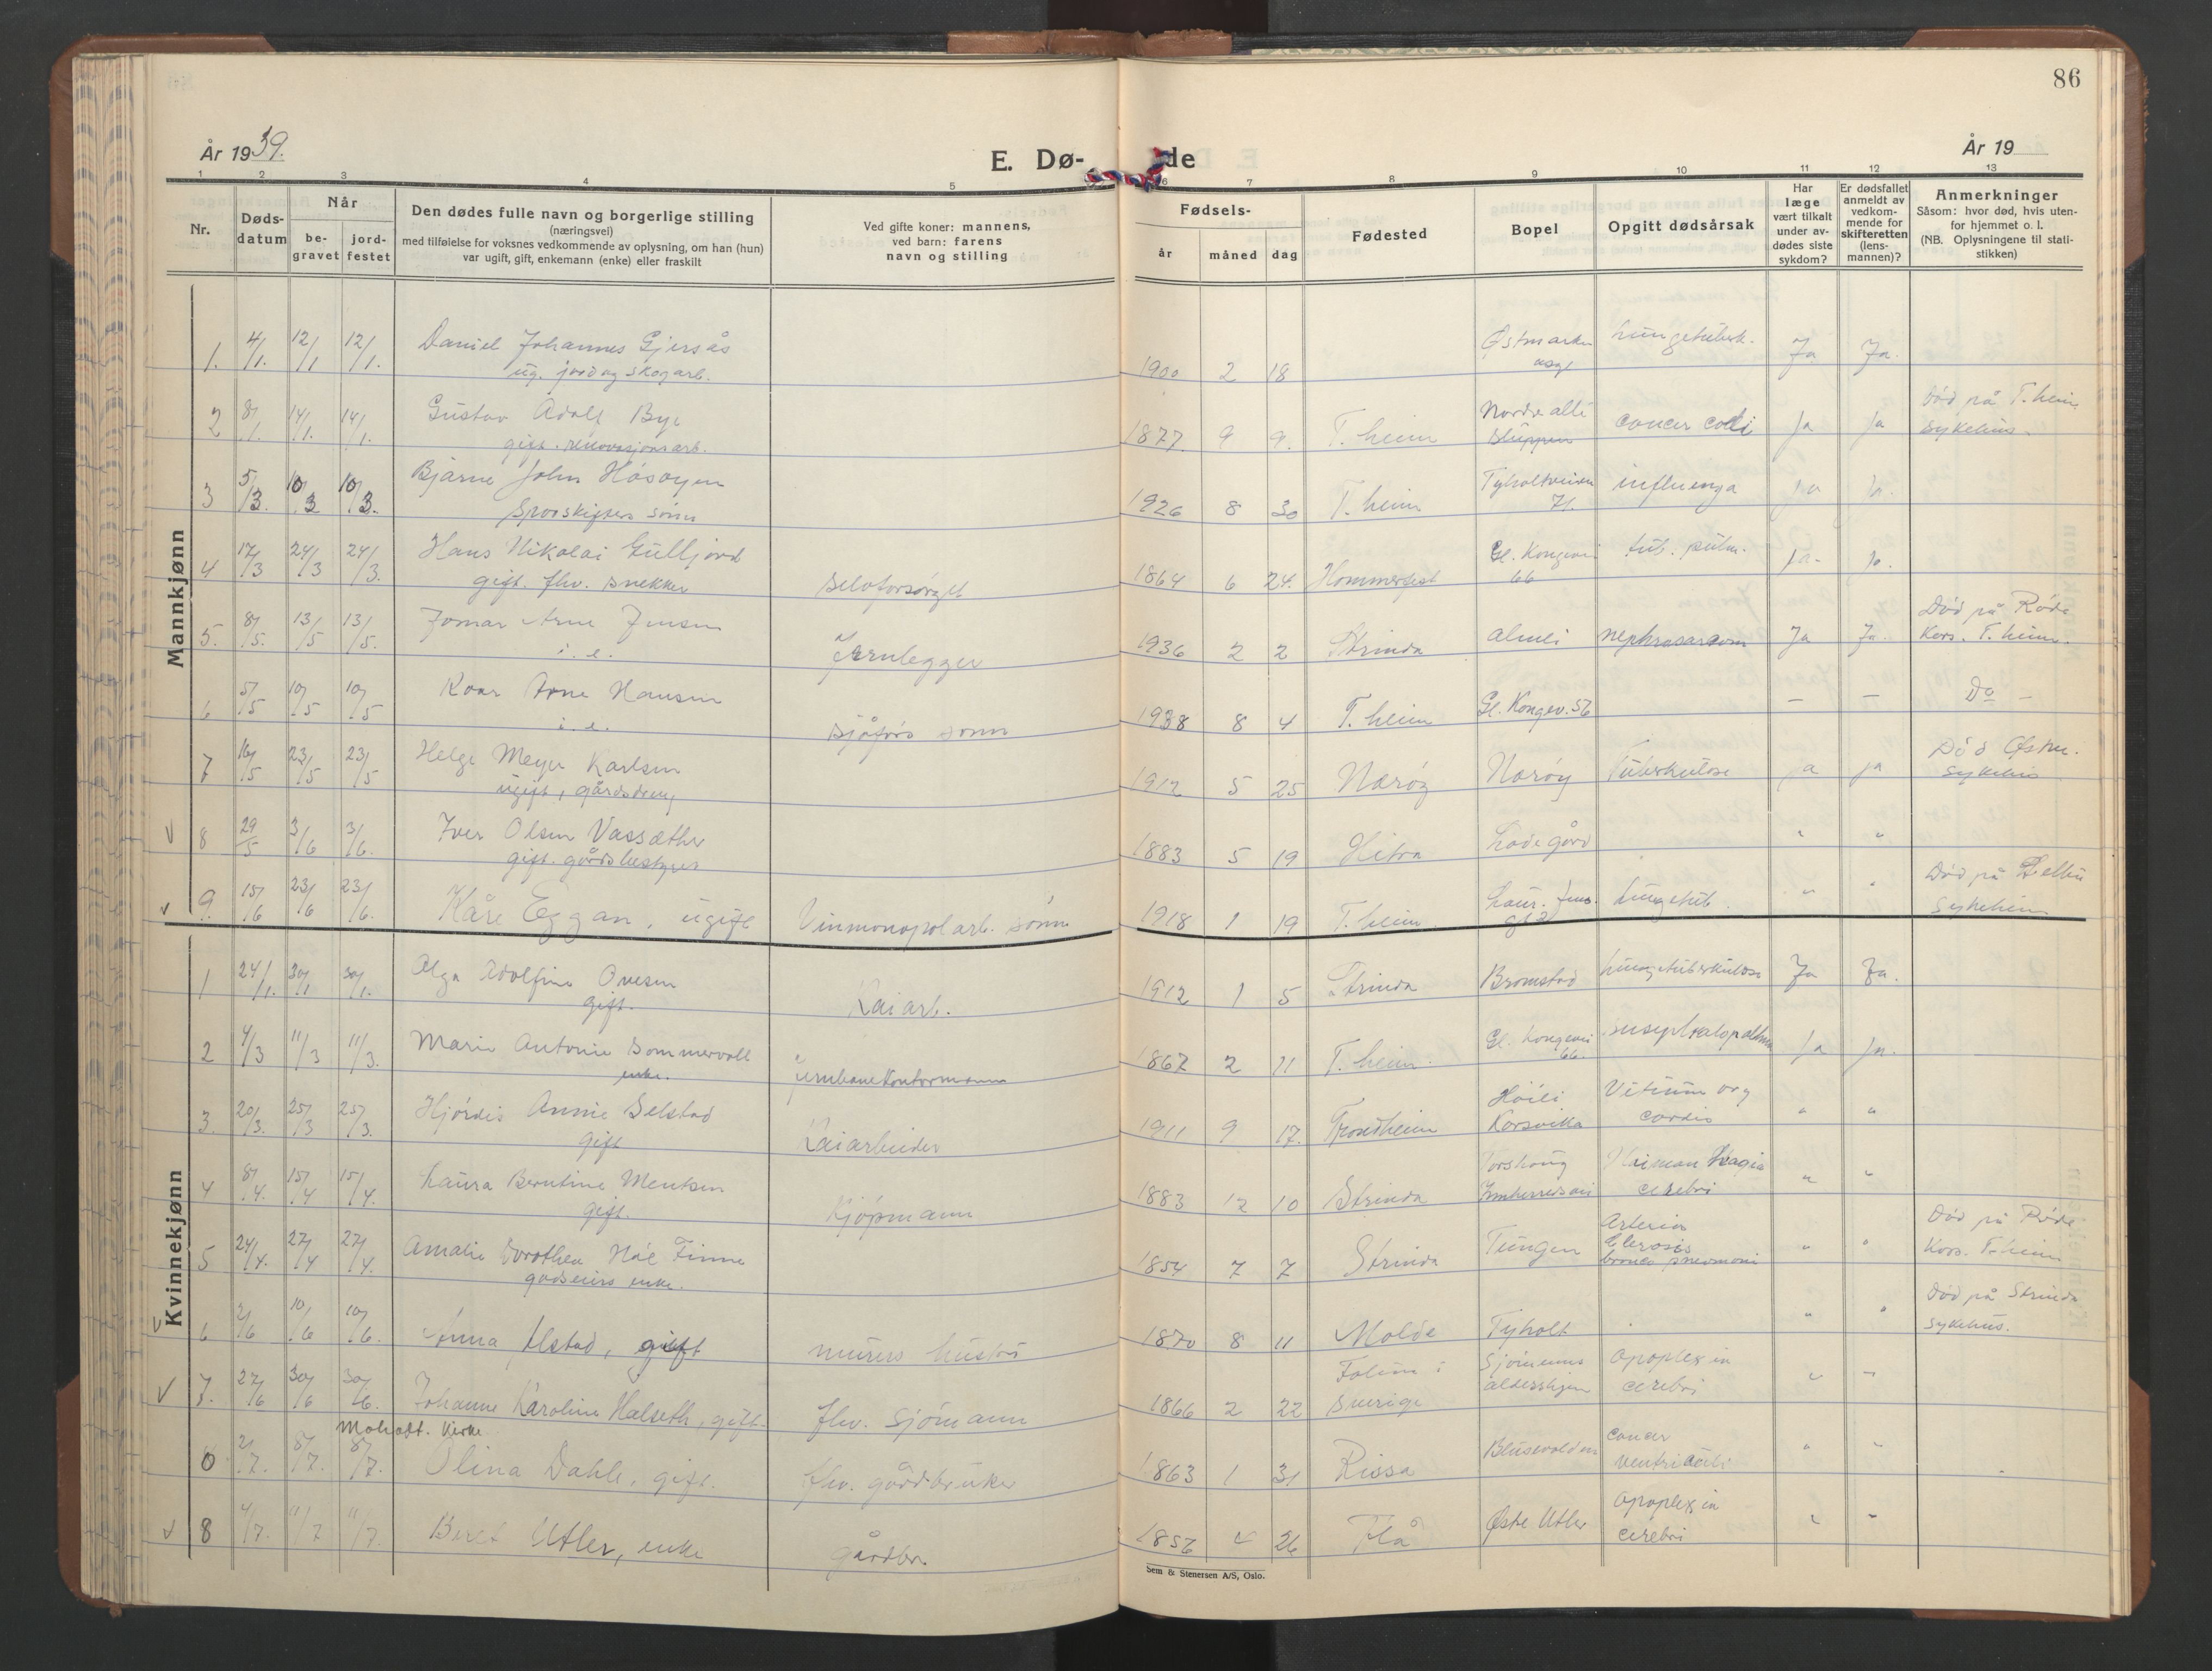 86
År 1939.
E. Dø- de
År 19
1 2 3 4 5 6 7 8 9 10 11 12 13
Nr.
Døds-
datum
Når
be-
gravet
jord-
festet
Den dødes fulle navn og borgerlige stilling
(næringsvei)
med tilføielse for voksnes vedkommende av oplysning, om han (hun)
var ugift, gift, enkemann (enke) eller fraskilt
Ved gifte koner: mannens,
ved barn: farens
navn og stilling
Fødsels-
år måned dag
Fødested
Bopel
Opgitt dødsårsak
Har
læge
vært tilkalt
under av-
dødes siste
sykdom?
Er dødsfallet
anmeldt av
vedkom-
mende for
skifteretten
(lens-
mannen)?
Anmerkninger
Såsom: hvor død, hvis uten-
for hjemmet o. l.
(NB. Oplysningene til stati-
stikken)
Mannkjønn
1. 4/1. 12/1 12/1. Daniel Johannes Gjersås
ug. jord og skogarb.
1900 2 18 Østmarka
asyl
lungetuberk. Ja Ja.
2 8/1. 14/1. 14/1. Gustav Adolf Bye
gift. renovasjonsarb.
1877. 9 9. T.heim Nordre alle
Sluppen
cancer coli Ja Ja Død på T.heim
sykehus.
3 5/3. 10/3 10/3. Bjarne John Hösøyen
sønn
1926 8 30 T.heim Tyholtveien
71.
influenza Ja Ja.
4 17/3 24/3 24/3. Hans Nikolai Gulljord
gift. fhv. snekker selvforsørget
1864 6 24. Hammerfest Gl. Kongevei
66
tub. pulm. Ja. Ja.
5. 8/5. 13/5 13/5. Jomar Arne Jensen
i. e. Jernlegger
1936 2 2 Strinda almli nephrosarcom Ja Ja. Død på Röde
Kors. T.heim.
6 5/5 10/5 10/5 Roar Arne Hansen
i. e. sjåførs sønn
1938 8 4 T.heim Gl. Kongev. 56 — — Do —
7 16/5 23/5 23/5 Helge Meyer Karlsen
ugift, gårdsdreng
1912 5 25 Nærøy Nærøy Tuberkulose ja ja Död Østm.
sykehus
8 29/5 3/6 3/6. Iver Olsen Vassæther
gift. gårdsbestyrer
1883 5 19 Hitra Lade gård " "
9. 15/6 23/6 23/6. Kåre Eggan, ugift Vinmonopolarb. sønn
1918 1 19 T.heim. Laur. Jens.
gt 2
lungetub. " " Död på
sykehus
Kvinnekjønn
1 24/1. 30/1 30/1. Olga Adolfine Ovesen
gift. Kaiarb.
1912 1 5 Strinda Bromstad lungetuberkulose Ja Ja.
2 4/3 11/3 11/3. Marie Antonie Sommervold
enke. jernbanekontormann
1867 2 11 T.heim. Gl. Kongevei
66.
Ja Ja.
3. 20/3. 25/3 25/3. Hjördis Annie Selstad
gift Kaiarbeider
1911 9 17. Trondheim Höili
Korsvikka
Vitium org
cordis " "
4 8/4. 15/4 15/4. Laura Berntine Mentsen
gift. Kjöpmann
1883 12 10 Strinda Torshaug
Innherredsvei
cerebri " "
5 24/4. 27/4 27/4. Amalie Dorothea Höe Finne
godseiers enke.
1854 7 7 Strinda Tungen Arterio
sclerosis
bronco pneumoni " " Död på Röde
Kors. T.heim
6 2/6 10/6 10/6. Anna Alstad, gift murers hustru
1870 8 11 Molde Tyholt " " Död på Strinda
sykehus.
7. 27/6 30/6 30/6. Johanne Karoline Halseth, gift. fhv. sjömann
1866 2 22
Sverige
Sjömenns
aldershjem
apoplexia
cerebri
Moholt. Kirke
0 2/7. 8/7. 8/7. Olina Dahle, gift. fhv. gårdbruker
1863 1 31 Rissa cancer
ventriculi " "
8 4/7. 11/7 11/7. Beret Utler, enke gårdbr
1856 26 Flå Østre Utler apoplexia
cerebri
Sem & Stenersen A/S, Oslo.